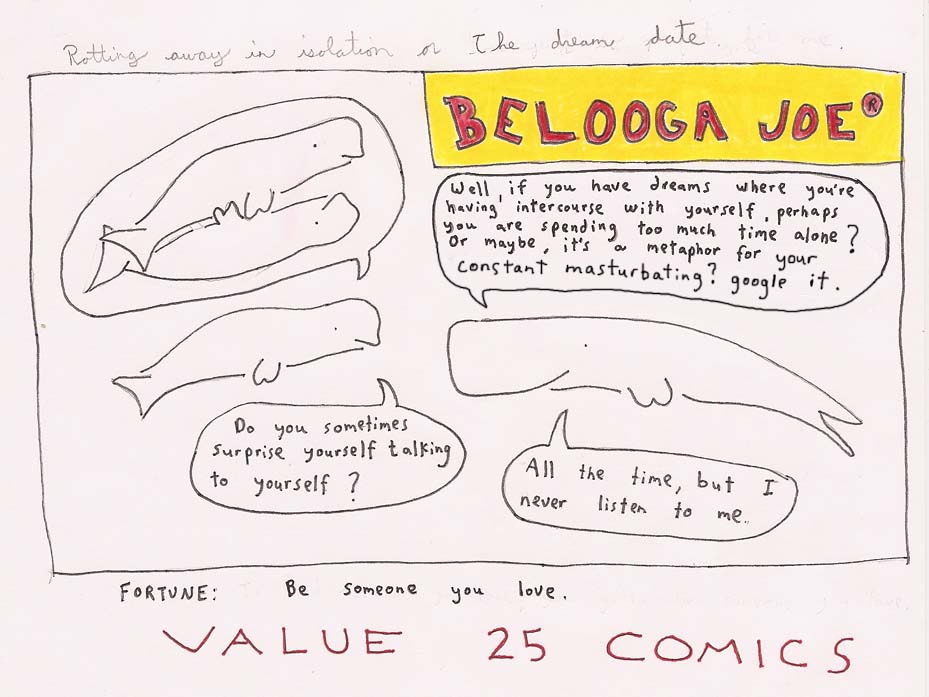 Rotting away in isolation or The dream date.
BELOOGA JOE®
Well, if you have dreams where you're
having intercourse with yourself, perhaps
you are spending too much time alone?
Or maybe, it's a metaphor for your
constant masturbating? google it.
Do you sometimes
surprise yourself talking
to yourself?
All the time, but I
never listen to me.
FORTUNE: Be someone you love.
VALUE 25 COMICS